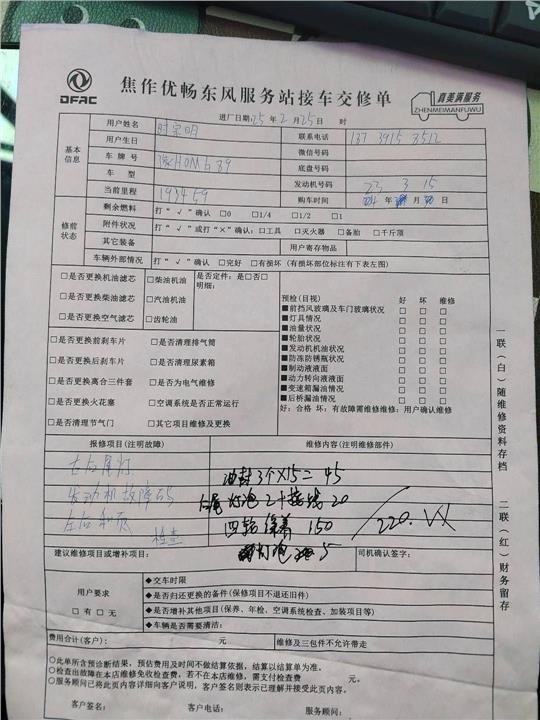 DFAC
焦作优畅东风服务站接车交修单
真美满服务
ZHENMEIMANFUWU
进厂日期:25 年 2 月 25 日 时
基本信息
用户姓名 时 明 联系电话
用户生日 微信号码
车牌号 豫HOM 689 底盘号码
车型 发动机号码
当前里程 193459 购车时间 23 3 15 年 月 日
修前状态
剩余燃料 打“√”确认 □0 □1/4 □1/2 □1
附件状况 打“√”或打“×”确认:□工具 □灭火器 □备胎 □千斤顶
其它装备 用户寄存物品
车辆外部情况 打“√”确认 □完好 □有损坏(有损坏部位标注有下表左图)
□是否更换机油滤芯 □柴油机油 是否定件:是□否□
明细:
□是否更换柴油滤芯 □汽油机油
□是否更换空气滤芯 □齿轮油
□是否更换前刹车片 □是否清理排气筒
□是否更换后刹车片 □是否清理尿素箱
□是否更换离合三件套 □是否为电气维修
□是否更换火花塞 □空调系统是否正常运行
□是否清理节气门 □其它项目维修及更换
预检(目视) 好 坏 维修
■前挡风玻璃及车门玻璃状况 □ □ □
■灯具情况 □ □ □
■油量状况 □ □ □
■轮胎状况 □ □ □
■发动机机油状况 □ □ □
■防冻防锈瓶状况 □ □ □
■制动液液面 □ □ □
■动力转向液液面 □ □ □
■变速箱漏油情况 □ □ □
■后桥漏油情况 □ □ □
好:合格 坏:有故障需维修维修:用户确认维修
报修项目(注明故障) 维修内容(注明维修部件)
右后角灯 油封3个×15=45
发动机故障码 右尾灯泡2个接线20
左后 检查 四轮保养 150
灯泡 5
220.
建议维修项目或增补项目: 司机确认签字:
用户要求
□有□无
◆交车时限
◆是否归还更换的备件(保修项目不退还旧件)
◆是否增补其他项目(保养、年检、空调系统检查、加装项目等)
◆车辆是否需要清洁:
费用合计(客户): 元 维修及三包件不允许带走
○此单所含预诊断结果,预估费用及时间不做结算依据,结算以结算单为准。
○检查出故障在本店维修免收检查费,若不在本店维修,需支付检查费 元。
○服务顾问已将此页内容详细向客户说明,客户签名则表示已理解并接受此页内容。
客户签名: 客户电话: 服务顾问:
一联(白)随维修资料存档
二联(红)财务留存